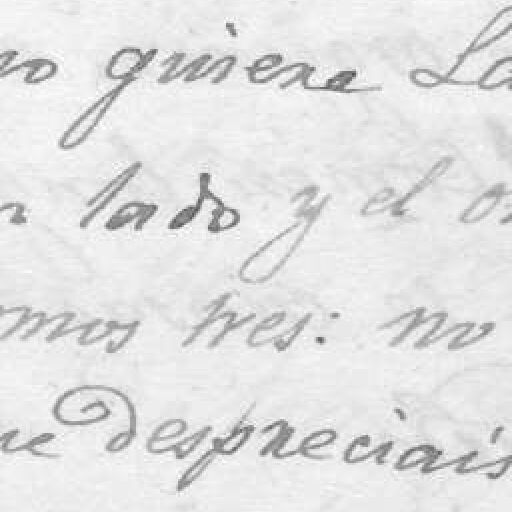 no quiere La
n lado y el o
omos tres: no
ue despreciais